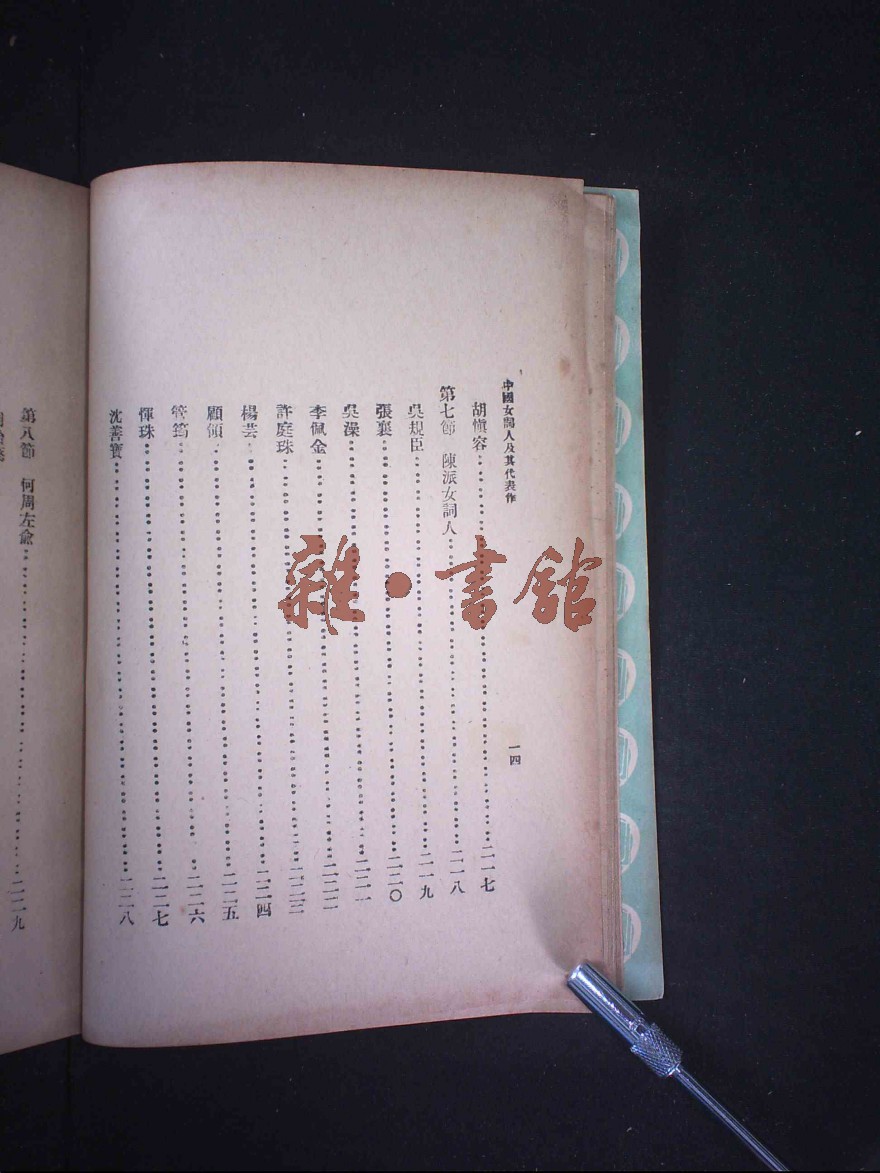 中國女詞人及其代表作
一四
胡愼容……二一七
第七節 陳派女詞人……二一八
吳規臣……二一九
張襄……二二〇
吳澡……二二一
李佩金……二二二
許庭珠……二二三
楊芸……二二四
顧領……二二五
管筠……二二六
惲珠……二二七
沈善寶……二二八
第八節 何周左兪……二二九
雜·書館